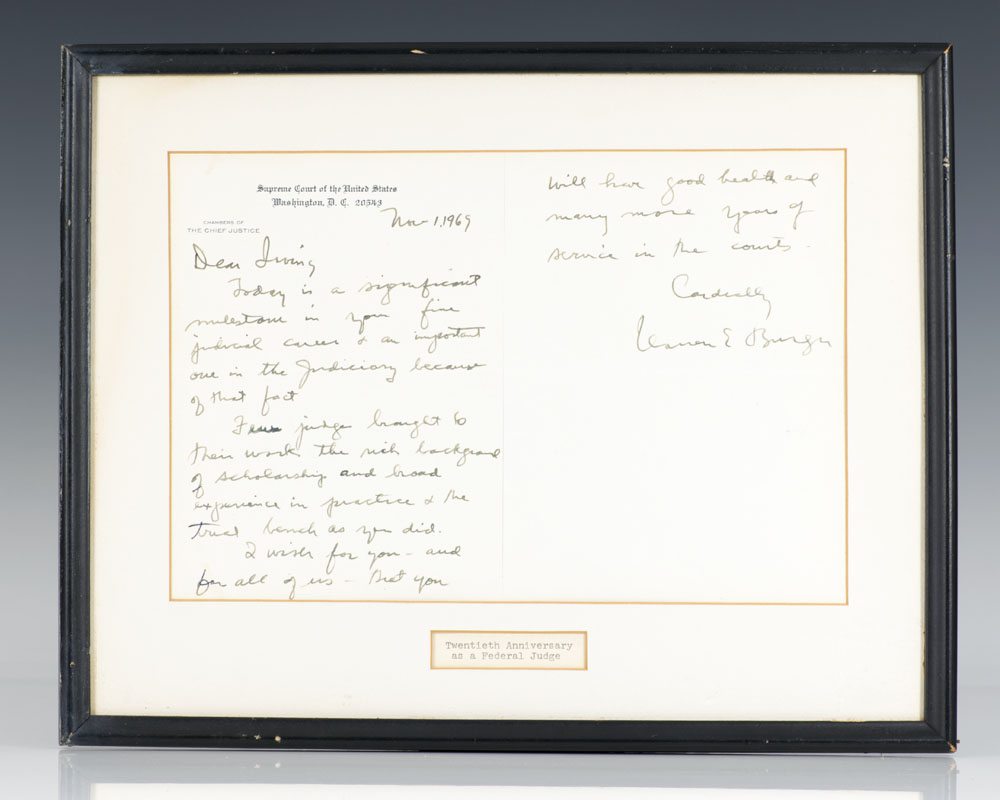 Supreme Court of the United States
Washington, D. C. 20543
CHAMBERS OF
THE CHIEF JUSTICE
Nov 1, 1969
Dear Irving
Today is a significant
milestone in your fine
judicial career & an important
one in the Judiciary because
of that fact
Few judges brought to
their work the rich background
of scholarship and broad
experience in practice & the
trial bench as you did.
I wish for you – and
for all of us – that you
will have good health and
many more years of
service in the courts.
Cordially
Warren E Burger
Twentieth Anniversary
as a Federal Judge